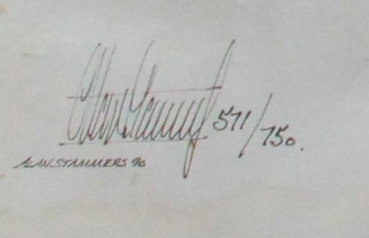 Alan Stammers 571/750.
ALAN STAMMERS 90